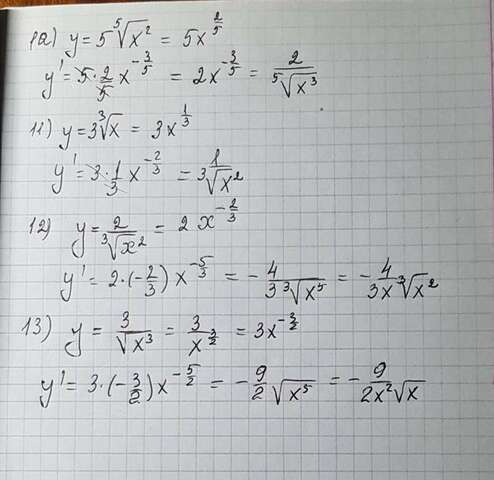 10) y = 5 ⁵√x² = 5x^(2/5)
y' = 5 · 2/5 x^(-3/5) = 2x^(-3/5) = 2/⁵√x³
11) y = 3 ³√x = 3x^(1/3)
y' = 3 · 1/3 x^(-2/3) = 1/³√x²
12) y = 2/³√x² = 2x^(-2/3)
y' = 2 · (-2/3) x^(-5/3) = -4/(3 ³√x⁵) = -4/(3x ³√x²)
13) y = 3/√x³ = 3/x^(3/2) = 3x^(-3/2)
y' = 3 · (-3/2) x^(-5/2) = -9/(2√x⁵) = -9/(2x²√x)